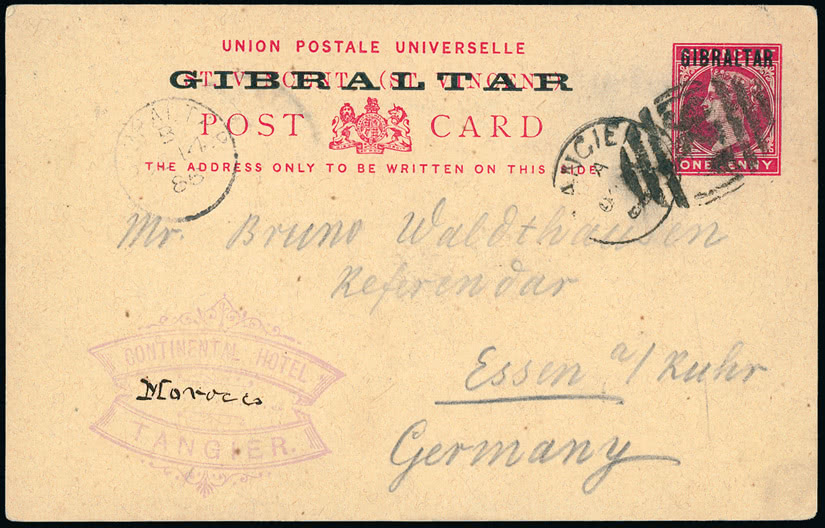 UNION POSTALE UNIVERSELLE
GIBRALTAR
ST. VINCENT (ST. VINCENT)
POST CARD
THE ADDRESS ONLY TO BE WRITTEN ON THIS SIDE
GIBRALTAR
ONE PENNY
B
14
86
TANGIER
A
Mr. Bruno Waldthausen
Referendar
Essen a/ Ruhr
Germany
CONTINENTAL HOTEL
Morocco
TANGIER.